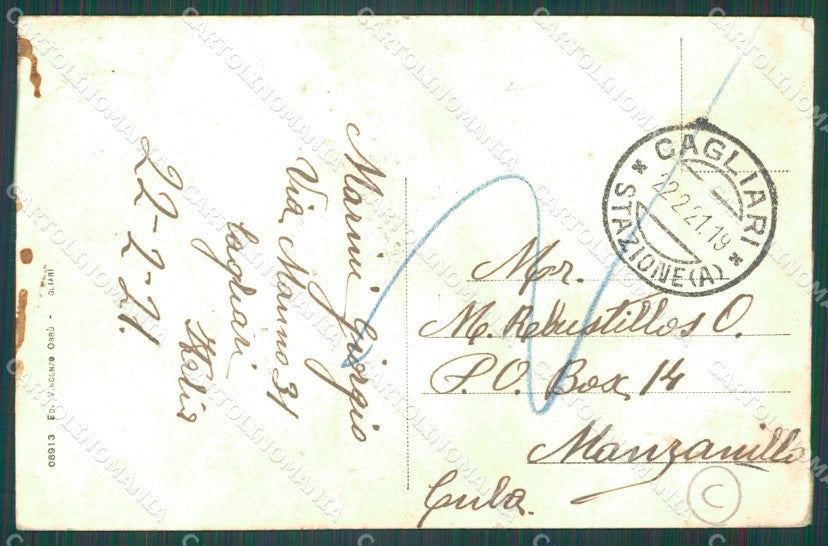 Marini Giorgio
Via Manno 31
Cagliari
Italia
22-2-21.
08913 ED. VINCENZO ORRÙ - GLIARI
CAGLIARI
22.2.21.19
STAZIONE (A)
Mr.
M. Rebustillos O.
P.O. Box 14
Manzanillo
Cuba.
C
CARTOLINOMANIA